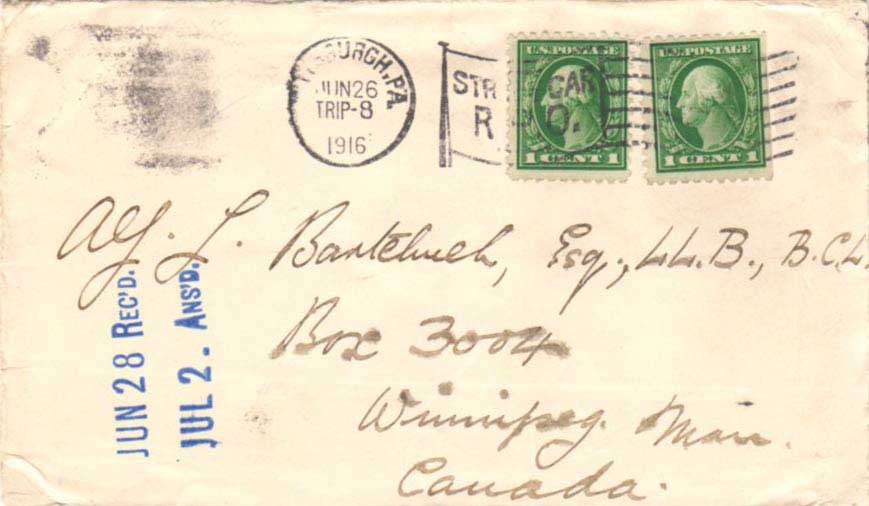 TSBURGH, PA.
JUN 26
TRIP-8
1916
STR CAR
R. P. O.
U.S. POSTAGE
1 CENT 1
U.S. POSTAGE
1 CENT 1
L. Esq., LL.B., B.C.L.
Box 3004
Winnipeg. Man.
Canada.
JUN 28 REC'D.
JUL 2. ANS'D.